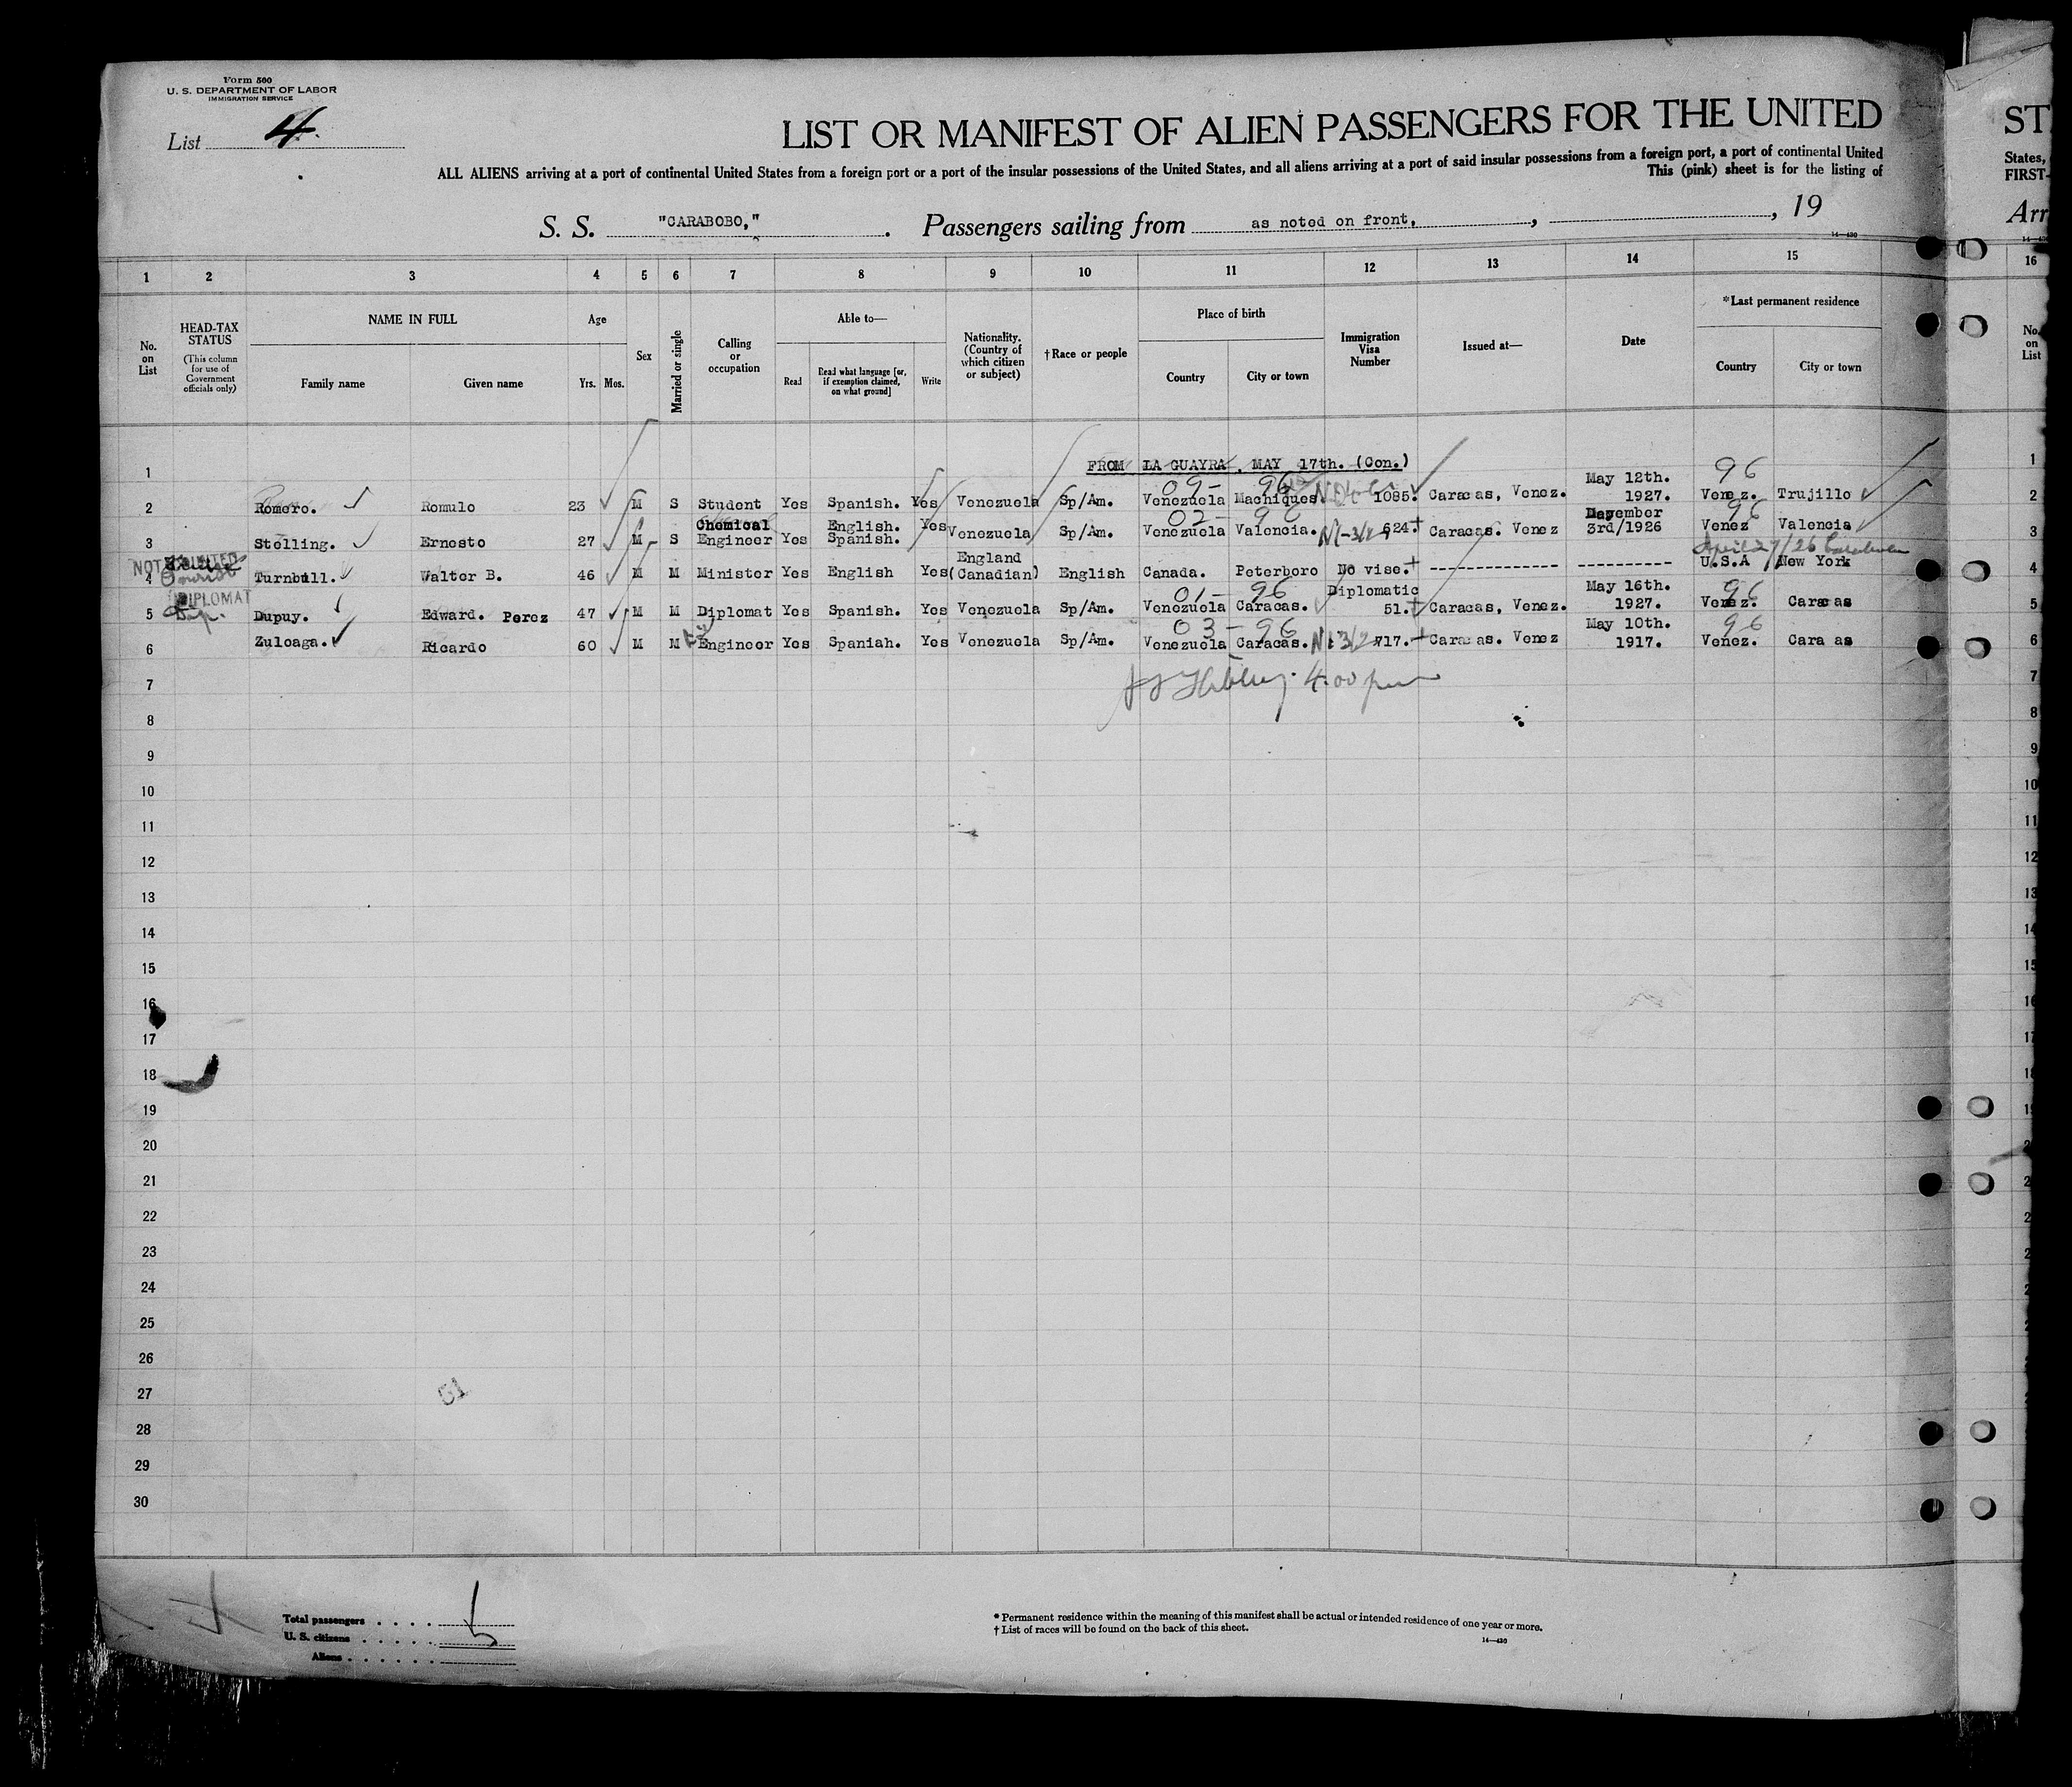 Form 500
U. S. DEPARTMENT OF LABOR
IMMIGRATION SERVICE
List 4.
LIST OR MANIFEST OF ALIEN PASSENGERS FOR THE UNITED
ALL ALIENS arriving at a port of continental United States from a foreign port or a port of the insular possessions of the United States, and all aliens arriving at a port of said insular possessions from a foreign port, a port of continental United
This (pink) sheet is for the listing of
S. S. "CARABOBO," . Passengers sailing from as noted on front, , , 19
14—430
ST
States,
FIRST-
Arr
1 2 3 4 5 6 7 8 9 10 11 12 13 14 15 16
No. on List
HEAD-TAX STATUS
(This column for use of Government officials only)
NAME IN FULL
Family name Given name
Age
Yrs. Mos.
Sex
Married or single
Calling or occupation
Able to—
Read
Read what language [or, if exemption claimed, on what ground]
Write
Nationality. (Country of which citizen or subject)
† Race or people
Place of birth
Country City or town
Immigration Visa Number
Issued at—
Date
* Last permanent residence
Country City or town
No. on List
1 FROM LA GUAYRA, MAY 17th. (Con.) 1
09- 96 May 12th. 96
2 Romero. Romulo 23 M S Student Yes Spanish. Yes Venezuela Sp/Am. Venezuela Machiques. 1085. Caracas, Venez. 1927. Venez. Trujillo 2
Chemical English. 02- 96 December 96
3 Stelling. Ernesto 27 M S Engineer Yes Spanish. Yes Venezuela Sp/Am. Venezuela Valencia. 624. Caracas. Venez 3rd/1926 Venez Valencia 3
NOT England
4 Turnbull. Walter B. 46 M M Minister Yes English Yes (Canadian) English Canada. Peterboro No vise. U.S.A New York 4
DIPLOMAT 01- 96 Diplomatic May 16th. 96
5 Dupuy. Edward. Perez 47 M M Diplomat Yes Spanish. Yes Venezuela Sp/Am. Venezuela Caracas. 51. Caracas, Venez. 1927. Venez. Caracas 5
03- 96 May 10th. 96
6 Zuloaga. Ricardo 60 M M Engineer Yes Spaniah. Yes Venezuela Sp/Am. Venezuela Caracas. 717. Caracas. Venez 1917. Venez. Cara as 6
7 4:00 pm 7
8 8
9 9
10 10
11 11
12 12
13 13
14
15
16
17
18
19
20
21
22
23
24
25
26
27
51
28
29
30
Total passengers
U. S. citizens
Aliens
* Permanent residence within the meaning of this manifest shall be actual or intended residence of one year or more.
† List of races will be found on the back of this sheet.
14—430